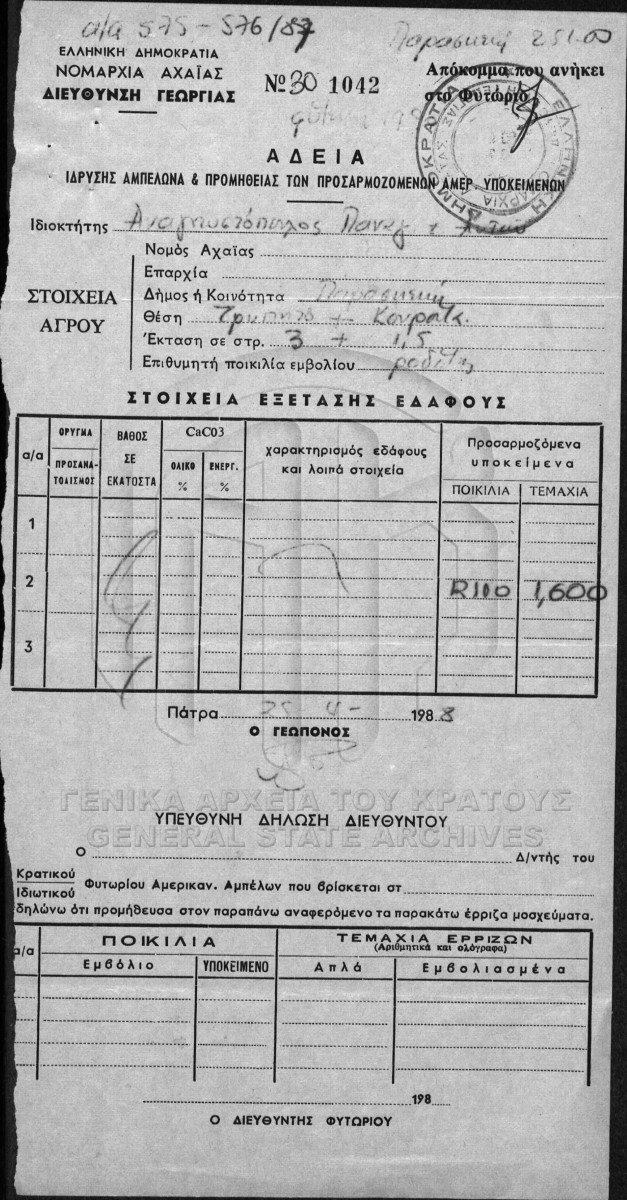 α/α 575 - 576/87
Παρασκευή
ΕΛΛΗΝΙΚΗ ΔΗΜΟΚΡΑΤΙΑ
ΝΟΜΑΡΧΙΑ ΑΧΑΪΑΣ
ΔΙΕΥΘΥΝΣΗ ΓΕΩΡΓΙΑΣ
Nº 30 1042
Απόκομμα που ανήκει
στο Φυτώριο
ΑΔΕΙΑ
ΙΔΡΥΣΗΣ ΑΜΠΕΛΩΝΑ & ΠΡΟΜΗΘΕΙΑΣ ΤΩΝ ΠΡΟΣΑΡΜΟΖΟΜΕΝΩΝ ΑΜΕΡ. ΥΠΟΚΕΙΜΕΝΩΝ
Ιδιοκτήτης Αναγνωστόπουλος Παναγ.
ΣΤΟΙΧΕΙΑ ΑΓΡΟΥ
Νομὸς Αχαΐας
Επαρχία
Δήμος ή Κοινότητα Παρασκευή
Θέση
Έκταση σε στρ. 3 + 1,5
Επιθυμητή ποικιλία εμβολίου ροδίτης
ΣΤΟΙΧΕΙΑ ΕΞΕΤΑΣΗΣ ΕΔΑΦΟΥΣ
α/α
ΟΡΥΓΜΑ
ΠΡΟΣΑΝΑ-
ΤΟΛΙΣΜΟΣ
ΒΑΘΟΣ
ΣΕ
ΕΚΑΤΟΣΤΑ
CaC03
ΟΛΙΚΟ
%
ΕΝΕΡΓ.
%
χαρακτηρισμός εδάφους
και λοιπά στοιχεία
Προσαρμοζόμενα
υποκείμενα
ΠΟΙΚΙΛΙΑ ΤΕΜΑΧΙΑ
1
2 R110 1,600
3
Πάτρα 25 4 - 1988
Ο ΓΕΩΠΟΝΟΣ
ΓΕΝΙΚΑ ΑΡΧΕΙΑ ΤΟΥ ΚΡΑΤΟΥΣ
GENERAL STATE ARCHIVES
ΥΠΕΥΘΥΝΗ ΔΗΛΩΣΗ ΔΙΕΥΘΥΝΤΟΥ
Ο Δ/ντής του
Κρατικού
Ιδιωτικού
Φυτωρίου Αμερικαν. Αμπέλων που βρίσκεται στ
δηλώνω ότι προμήθευσα στον παραπάνω αναφερόμενο τα παρακάτω έρριζα μοσχεύματα.
α/α
ΠΟΙΚΙΛΙΑ
ΤΕΜΑΧΙΑ ΕΡΡΙΖΩΝ
(Αριθμητικά και ολόγραφα)
Εμβόλιο ΥΠΟΚΕΙΜΕΝΟ Απλά Εμβολιασμένα
198
Ο ΔΙΕΥΘΥΝΤΗΣ ΦΥΤΩΡΙΟΥ